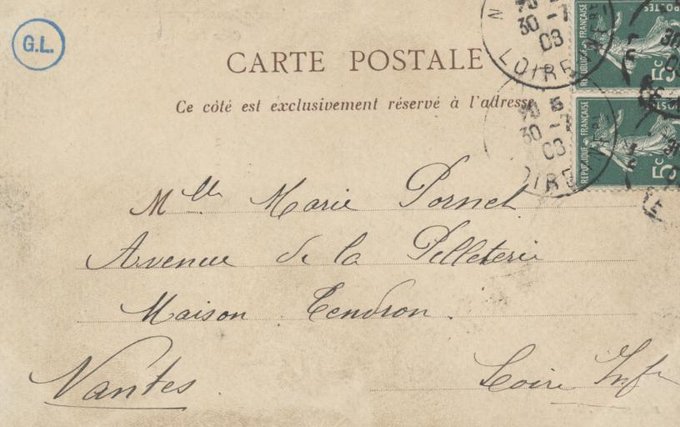 G.L.
CARTE POSTALE
Ce côté est exclusivement réservé à l'adresse
N
30 -7
03
LOIRE
30 -7
03
LOIRE
POSTES
REPUBLIQUE FRANÇAISE
5c
REPUBLIQUE FRANÇAISE
5c
Mlle Marie Pornet
Avenue de la Pelleterie
Maison Tendron.
Nantes. Loire Infre